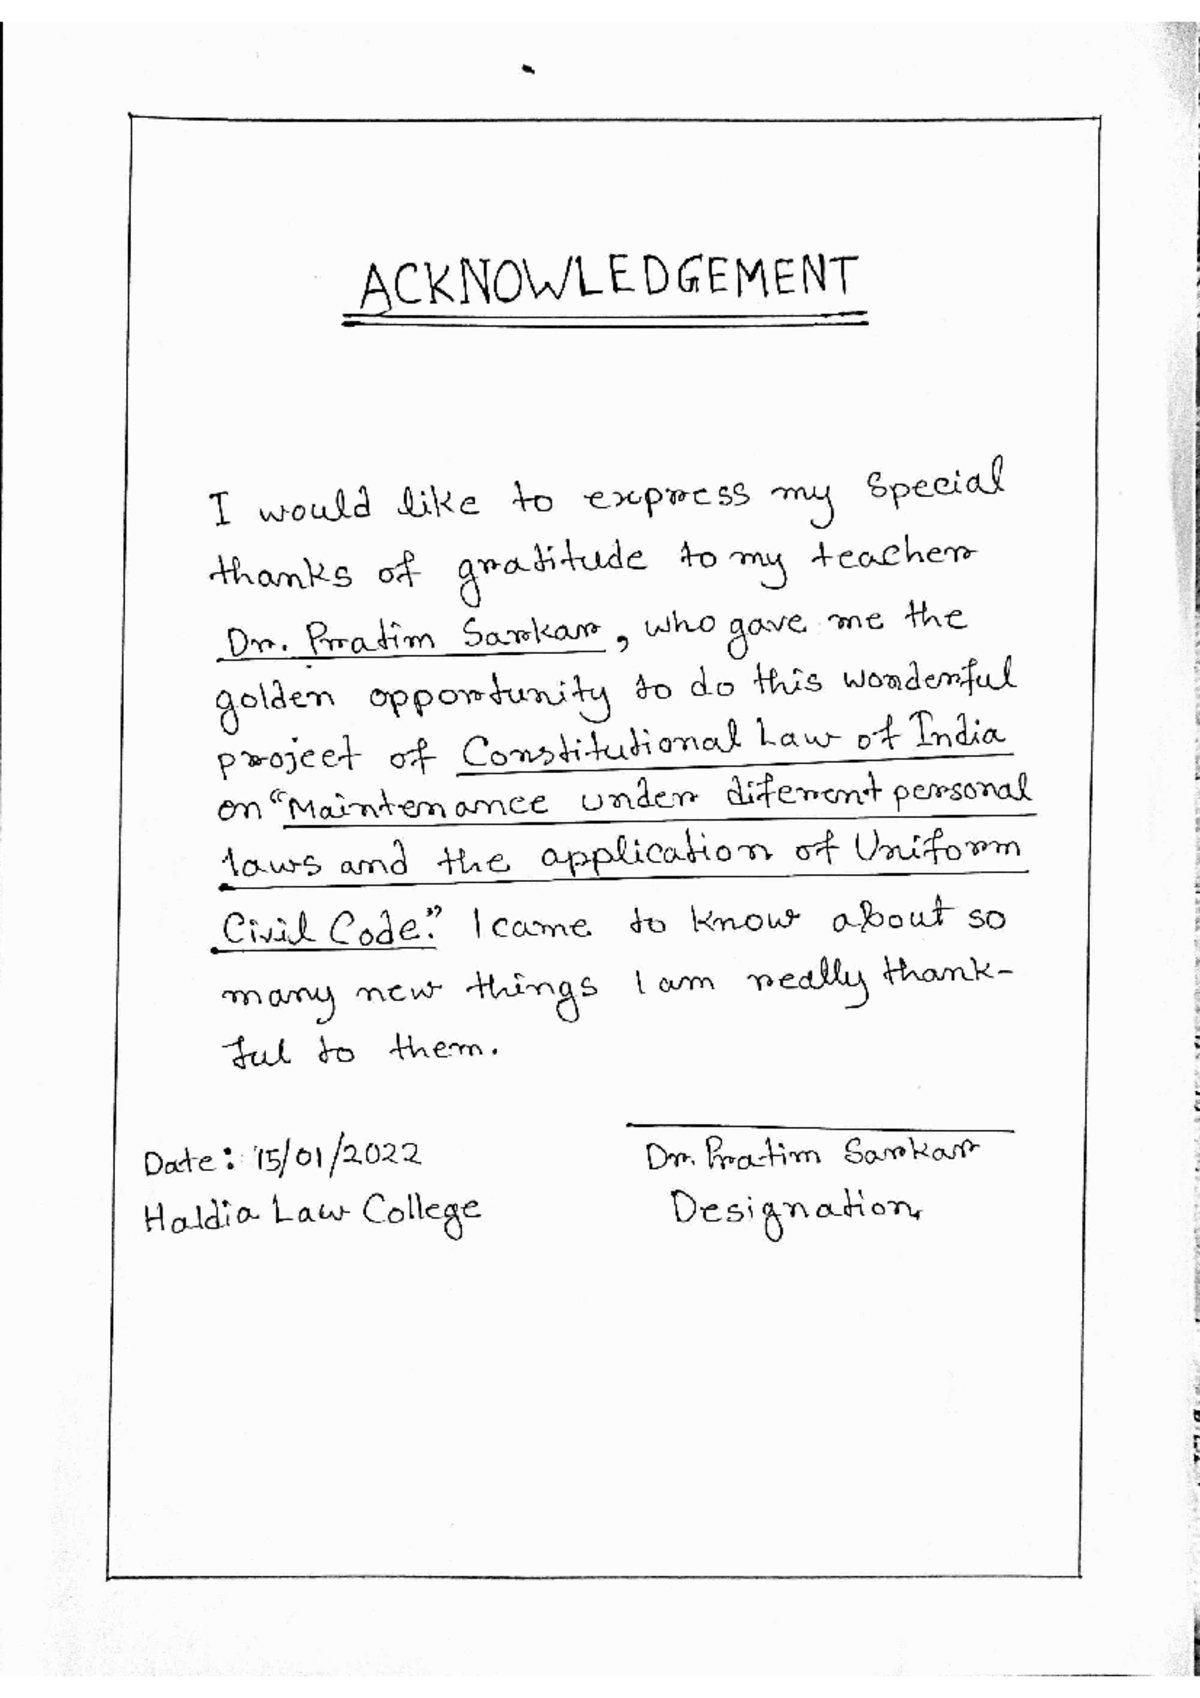 ACKNOWLEDGEMENT
I would like to express my Special
thanks of gratitude to my teacher
Dr. Pratim Sarkar, who gave me the
golden opportunity to do this wonderful
project of Constitutional Law of India
on "Maintenance under diferent personal
laws and the application of Uniform
Civil Code." I came to know about so
many new things I am really thank-
ful to them.
Date: 15/01/2022
Haldia Law College
Dr. Pratim Sarkar
Designation,